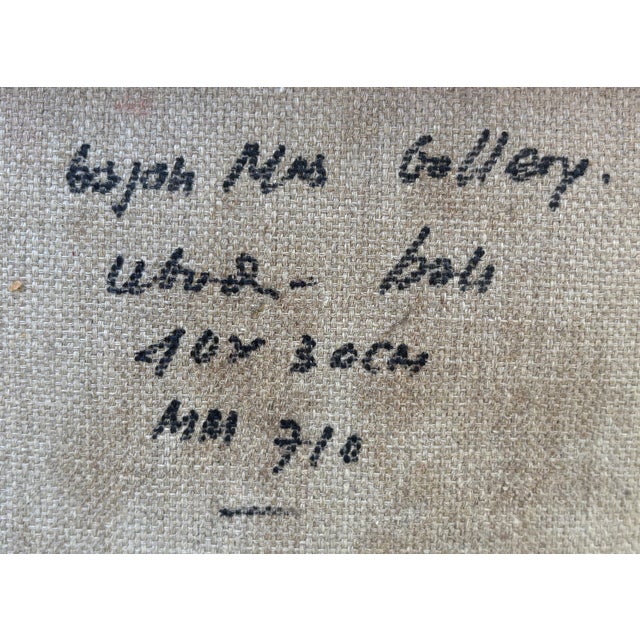 Gajah Mas Gallery.
Ubud - Bali
40x30cm
MM 710